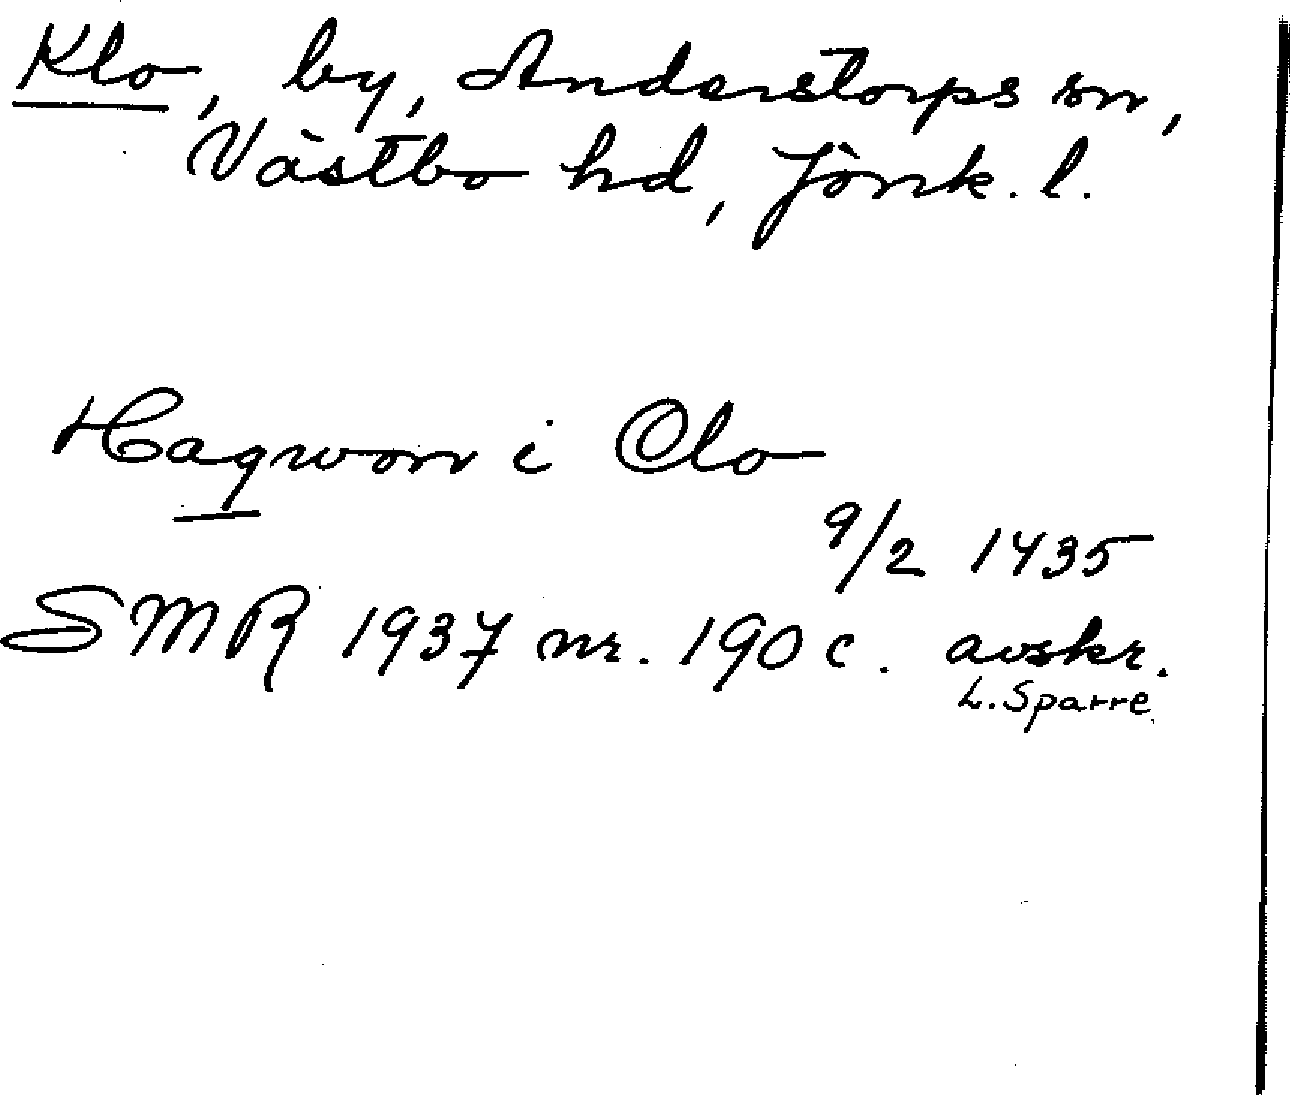 Klo, by, Anderstorps sn,
Västbo hd, Jönk. l.
Haqwon i Clo
9/2 1435
SMR 1937 nr. 190 c. avskr.
L. Sparre